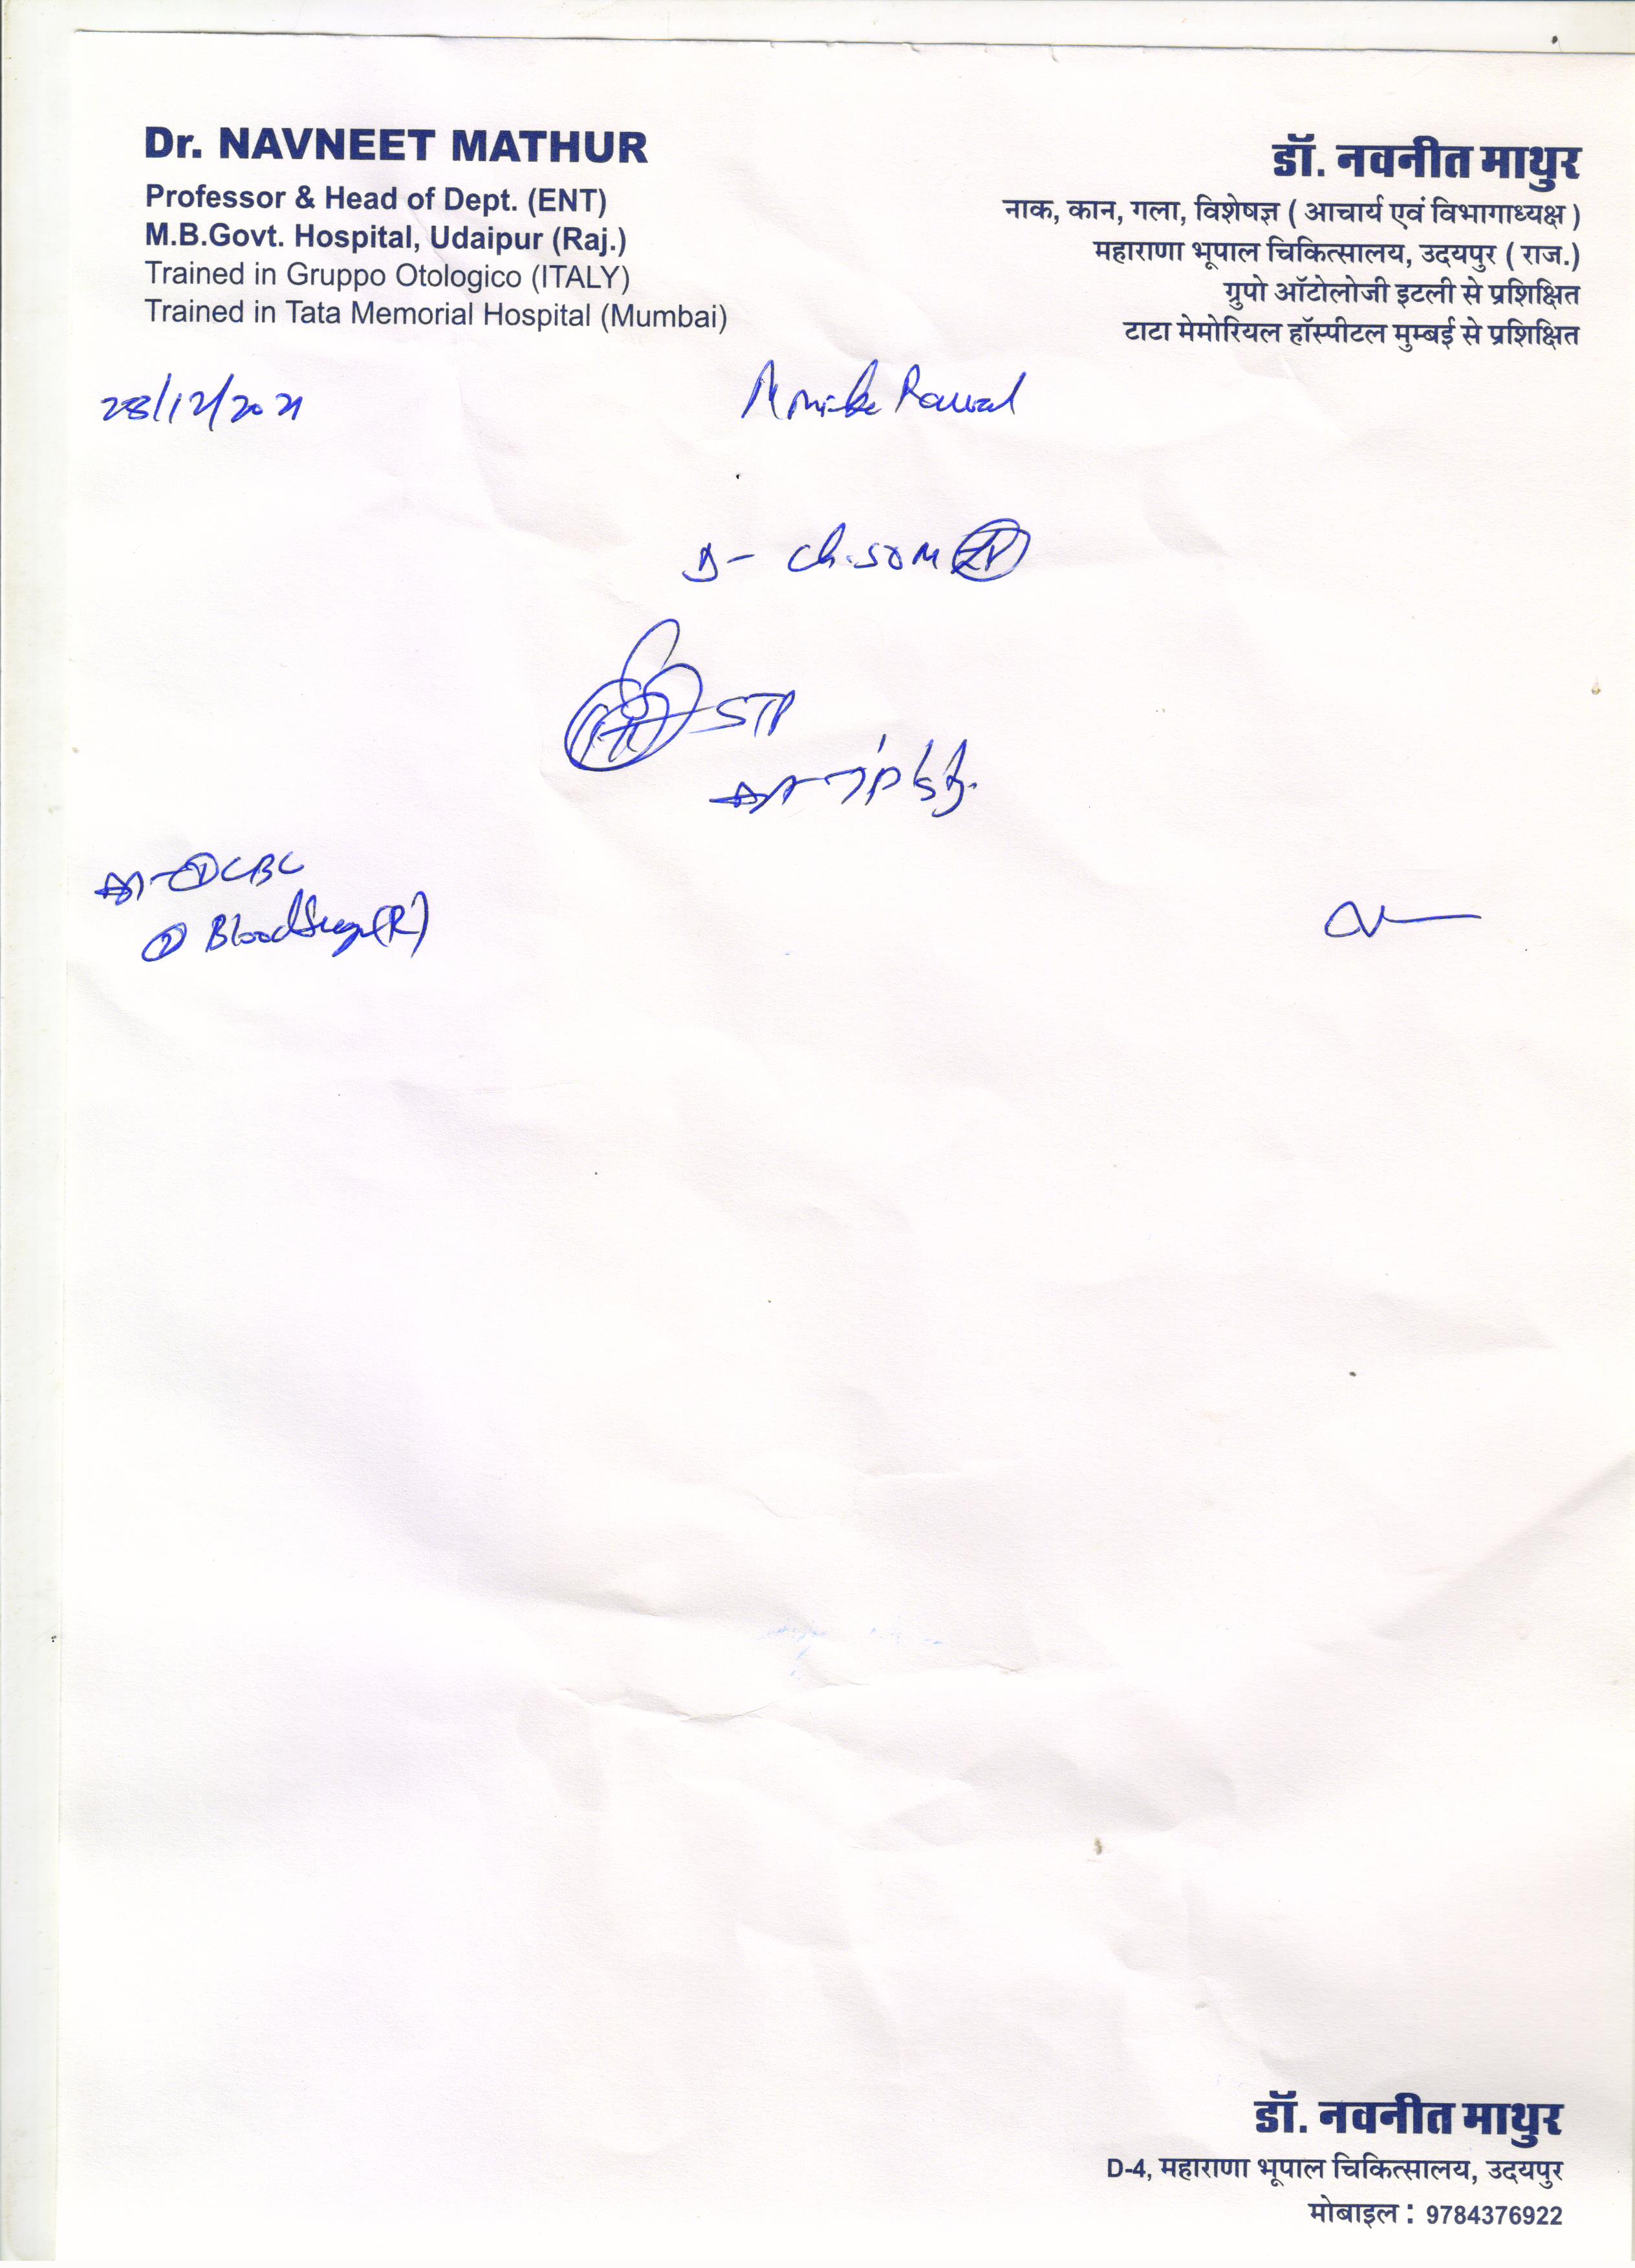 Dr. NAVNEET MATHUR
Professor & Head of Dept. (ENT)
M.B.Govt. Hospital, Udaipur (Raj.)
Trained in Gruppo Otologico (ITALY)
Trained in Tata Memorial Hospital (Mumbai)
डॉ. नवनीत माथुर
नाक, कान, गला, विशेषज्ञ ( आचार्य एवं विभागाध्यक्ष )
महाराणा भूपाल चिकित्सालय, उदयपुर ( राज.)
ग्रुपो ऑटोलोजी इटली से प्रशिक्षित
टाटा मेमोरियल हॉस्पीटल मुम्बई से प्रशिक्षित
28/12/2021
Rawal
D- Ch.SOM
CBC
② Blood Sugar (R)
डॉ. नवनीत माथुर
D-4, महाराणा भूपाल चिकित्सालय, उदयपुर
मोबाइल : 9784376922